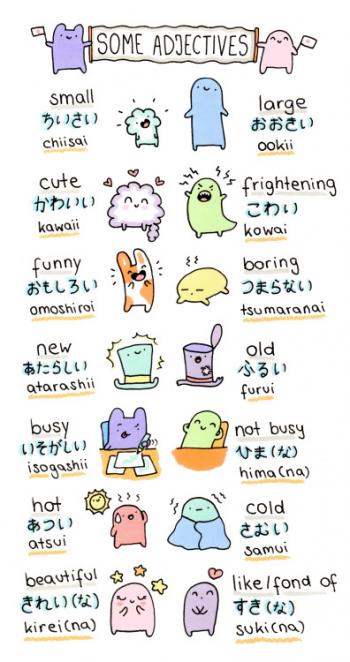 SOME ADJECTIVES
small
ちいさい
chiisai
large
おおきい
ookii
cute
かわいい
kawaii
frightening
こわい
kowai
funny
おもしろい
omoshiroi
boring
つまらない
tsumaranai
new
あたらしい
atarashii
old
ふるい
furui
busy
いそがしい
isogashii
not busy
ひま(な)
hima(na)
hot
あつい
atsui
cold
さむい
samui
beautiful
きれい(な)
kirei(na)
like/fond of
すき(な)
suki(na)